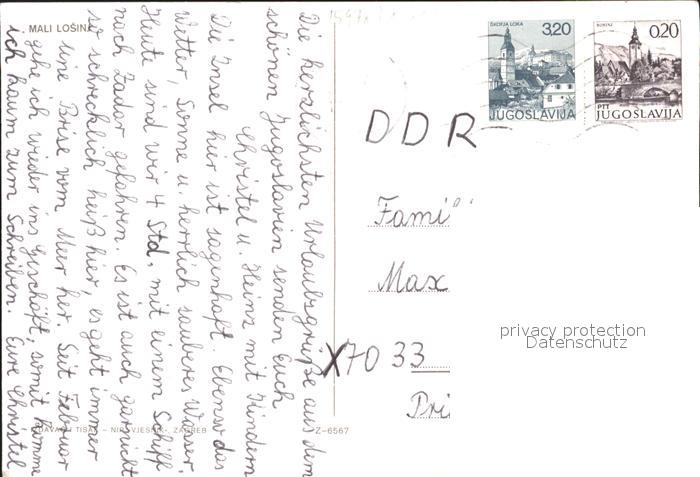 Die herzlichsten Urlaubsgrüße aus dem
schönen Jugoslavien senden Euch
Christel u. Heinz mit Kindern
Die Insel hier ist sagenhaft. Ebenso das
Wetter, Sonne u. herrlich sauberes Wasser.
Heute sind wir 4 Std. mit einem Schiff
nach Zadar gefahren. Es ist auch garnicht
so schrecklich heiß hier, es geht immer
eine Brise vom Meer her. Seit Februar
gehe ich wieder ins Geschäft, somit komme
ich kaum zum Schreiben. Eure Christel
MALI LOŠINJ
NIP „VJESNIK", ZAGREB
Z-6567
ŠKOFJA LOKA
3,20
JUGOSLAVIJA
BOHINJ
0,20
PTT
JUGOSLAVIJA
DDR
Fami
Max
X7033
Pri
privacy protection
Datenschutz